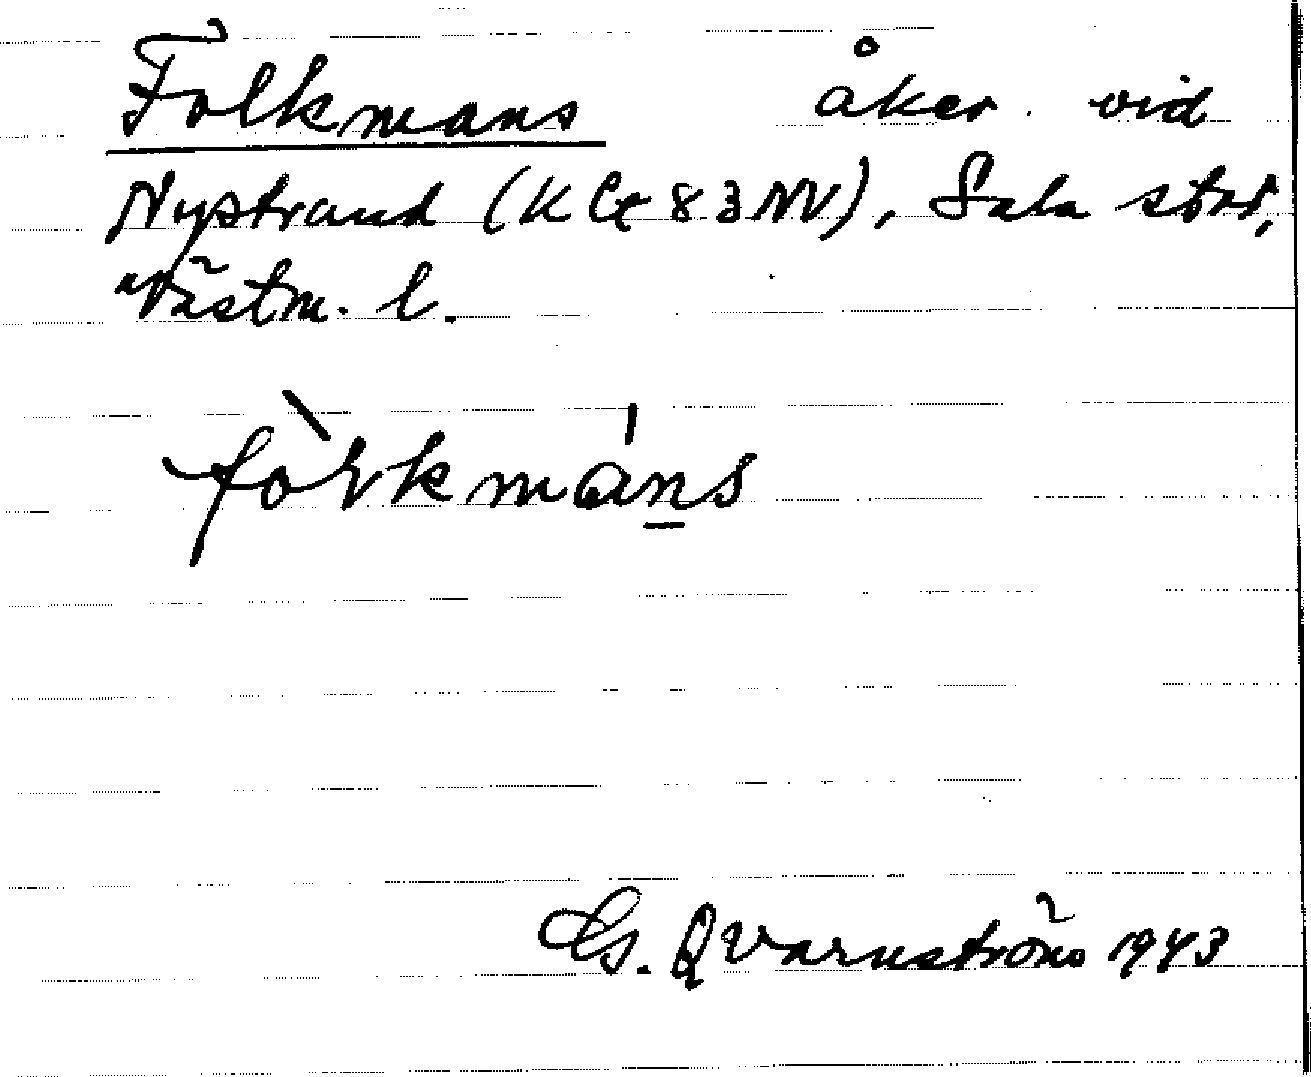 Folkmans åker vid
Nystrand (K Ex 83 NV), Sala stad,
Västm. l.
fòlkmáns
G. Qvarnström 1943